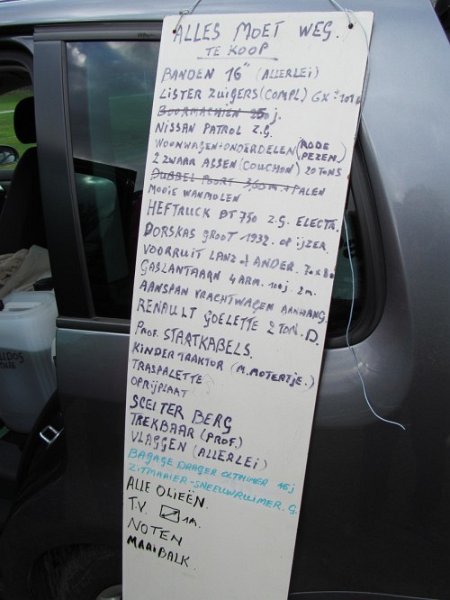 ALLES MOET WEG.
TE KOOP
BANDEN 16" (ALLERLEI)
LISTER ZUIGERS (COMPL) 6X
BOORMACHIEN j.
NISSAN PATROL Z.G.
WOONWAGEN+ONDERDELEN (RODE PEZEN.)
2 ZWAAR ASSEN (COUCHON) 20 TONS
DUBBEL POORT 3,60m + PALEN
MOOIE WANMOLEN
HEFTRUCK BT 750 Z.G. ELECTR.
DORSKAS GROOT 1932. OP IJZER
VOORRUIT LANZ + ANDER. 70x80
GASLANTAARN 4 ARM. 100j. 2m.
AANSPAN VRACHTWAGEN AANHANG.
RENAULT GOELETTE 2 TON. D.
PROF. STARTKABELS.
KINDER TRAKTOR (M. MOTERTJE.)
TRASPALETTE
OPRIJPLAAT
SCEITER BERG
TREKBAAR (PROF.)
VLAGGEN (ALLERLEI)
BAGAGE DRAGER 45 j
ZITMAAIER-SNEEUWRUIMER. G.
ALLE OLIEËN.
T.V. 1A.
NOTEN
MAAIBALK.